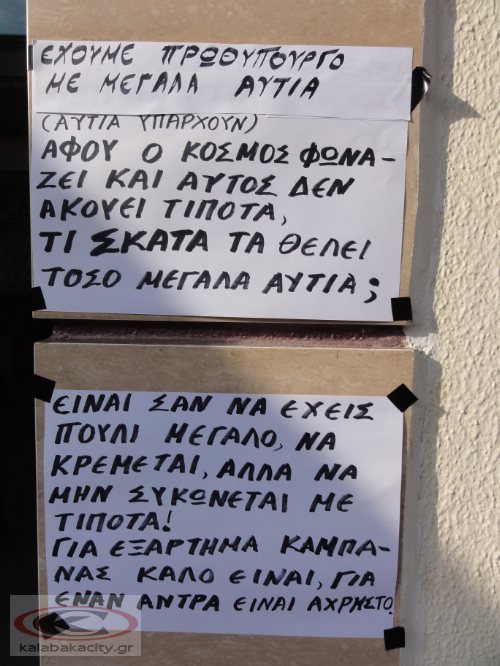 ΕΧΟΥΜΕ ΠΡΩΘΥΠΟΥΡΓΟ
ΜΕ ΜΕΓΑΛΑ ΑΥΤΙΑ
(ΑΥΤΙΑ ΥΠΑΡΧΟΥΝ)
ΑΦΟΥ Ο ΚΟΣΜΟΣ ΦΩΝΑ-
ΖΕΙ ΚΑΙ ΑΥΤΟΣ ΔΕΝ
ΑΚΟΥΕΙ ΤΙΠΟΤΑ,
ΤΙ ΣΚΑΤΑ ΤΑ ΘΕΛΕΙ
ΤΟΣΟ ΜΕΓΑΛΑ ΑΥΤΙΑ;
ΕΙΝΑΙ ΣΑΝ ΝΑ ΕΧΕΙΣ
ΠΟΥΛΙ ΜΕΓΑΛΟ, ΝΑ
ΚΡΕΜΕΤΑΙ, ΑΛΛΑ ΝΑ
ΜΗΝ ΣΥΚΩΝΕΤΑΙ ΜΕ
ΤΙΠΟΤΑ!
ΓΙΑ ΕΞΑΡΤΗΜΑ ΚΑΜΠΑ-
ΝΑΣ ΚΑΛΟ ΕΙΝΑΙ, ΓΙΑ
ΕΝΑΝ ΑΝΤΡΑ ΕΙΝΑΙ ΑΧΡΗΣΤΟ.
kalabakacity.gr